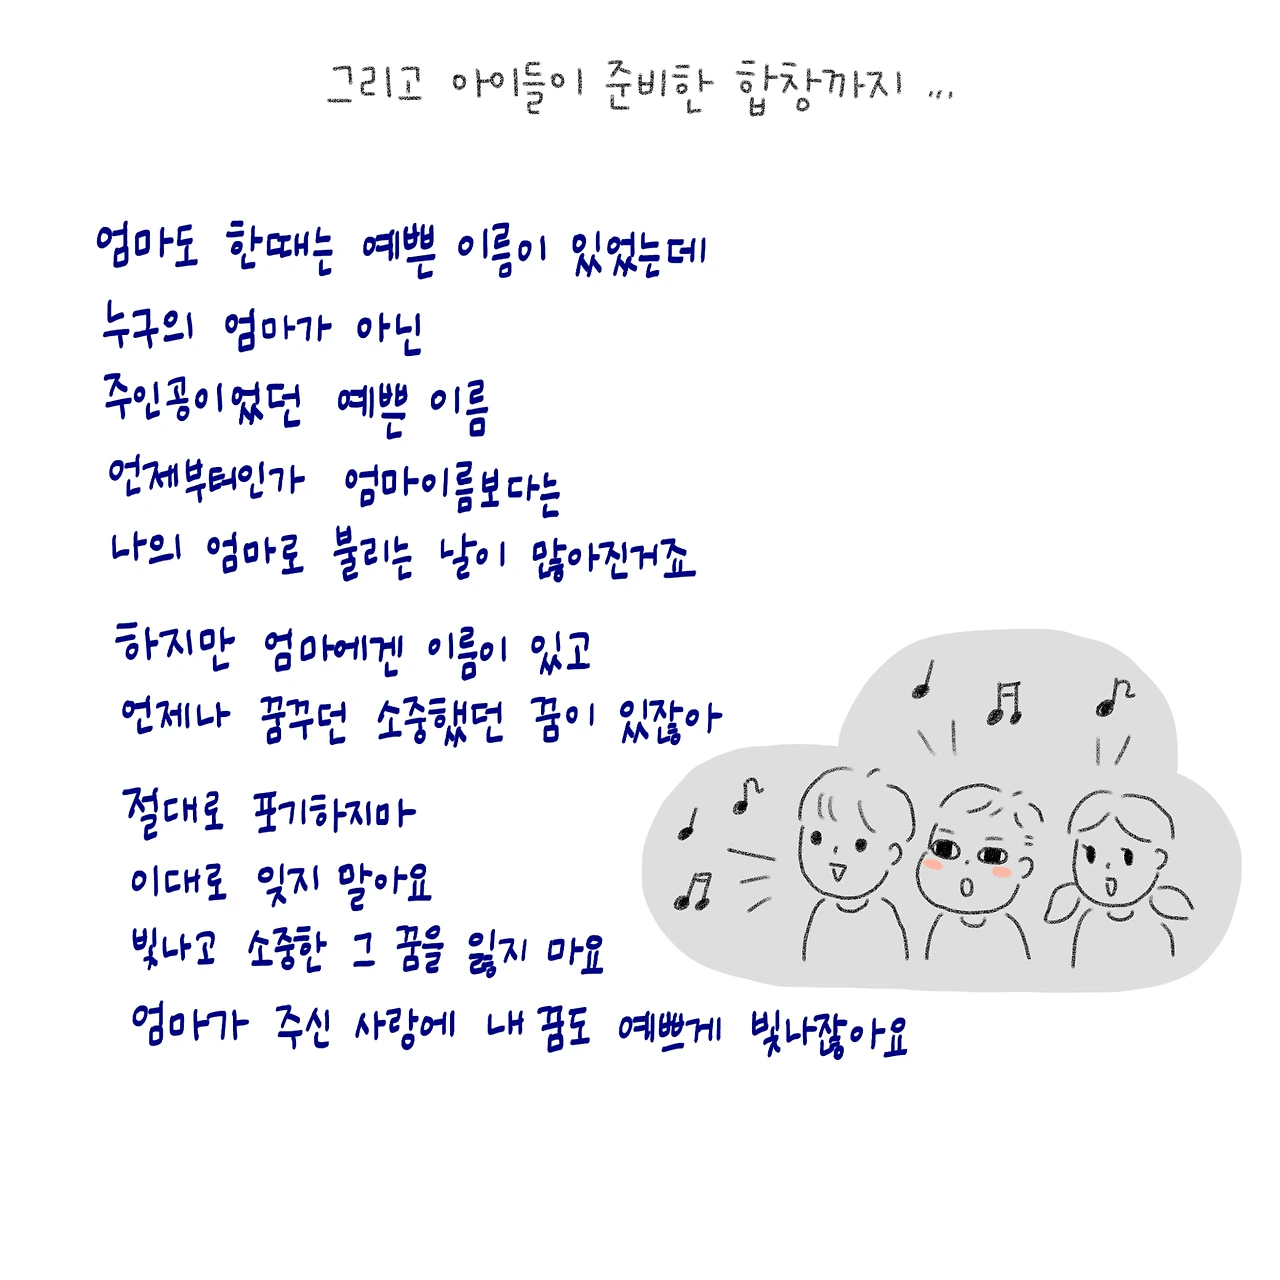 그리고 아이들이 준비한 합창까지 ...
엄마도 한때는 예쁜 이름이 있었는데
누구의 엄마가 아닌
주인공이었던 예쁜 이름
언제부터인가 엄마이름보다는
나의 엄마로 불리는 날이 많아진거죠
하지만 엄마에겐 이름이 있고
언제나 꿈꾸던 소중했던 꿈이 있잖아
절대로 포기하지마
이대로 잊지 말아요
빛나고 소중한 그 꿈을 잃지 마요
엄마가 주신 사랑에 내 꿈도 예쁘게 빛나잖아요